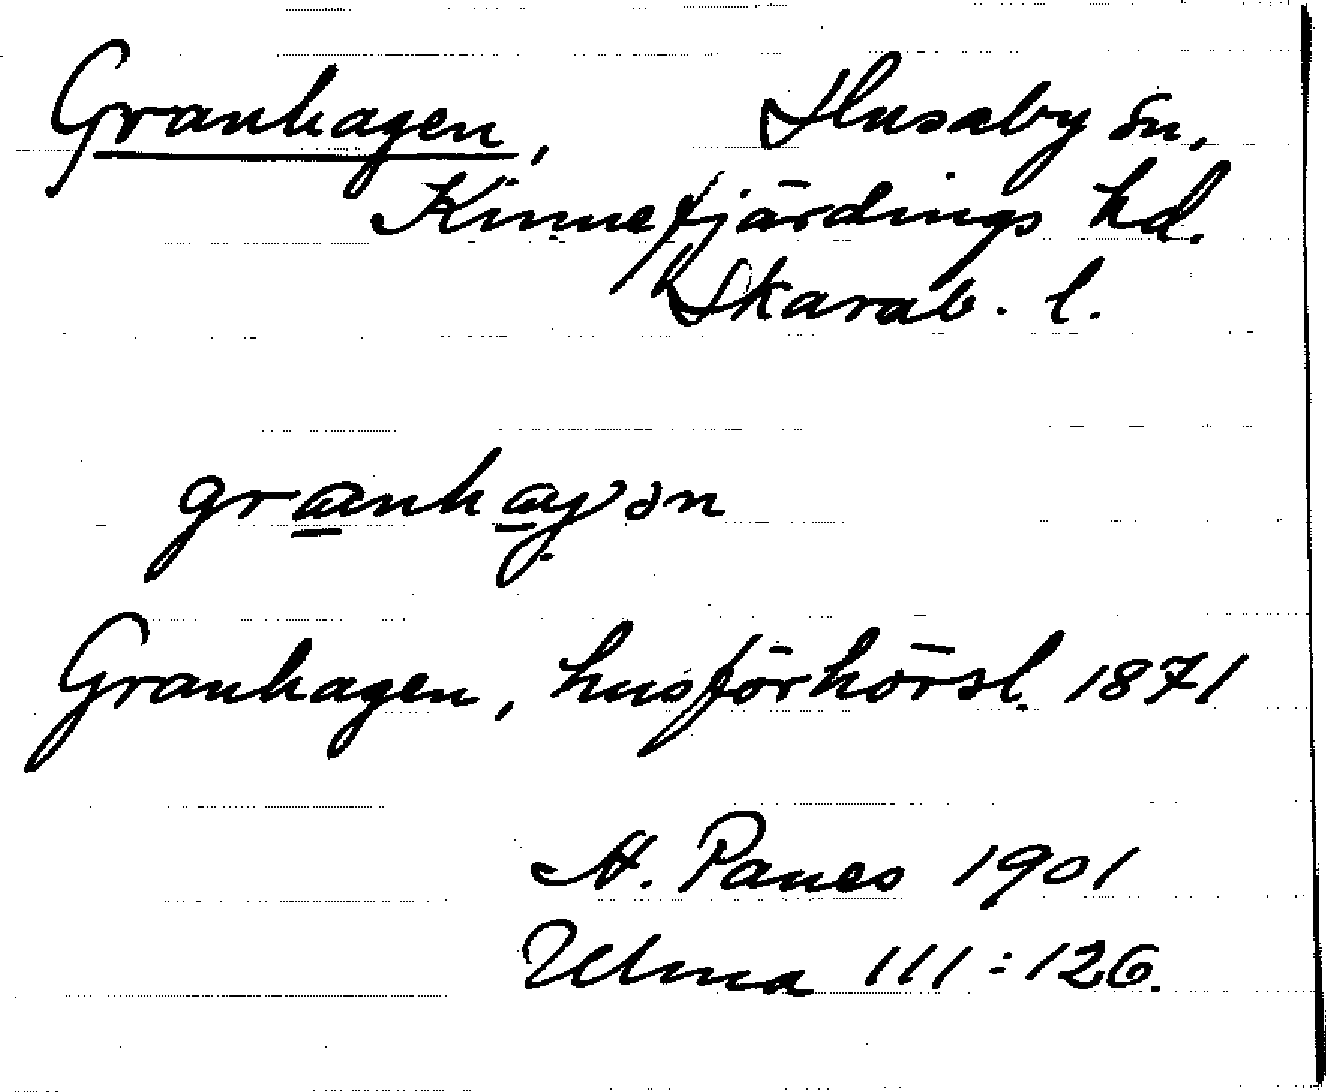 Granhagen, Husaby sn,
Kinnefjärdings hd.
Skarab. l.
granhagən
Granhagen, husförhörsl. 1871
A. Panes 1901
Ulma 111:126.